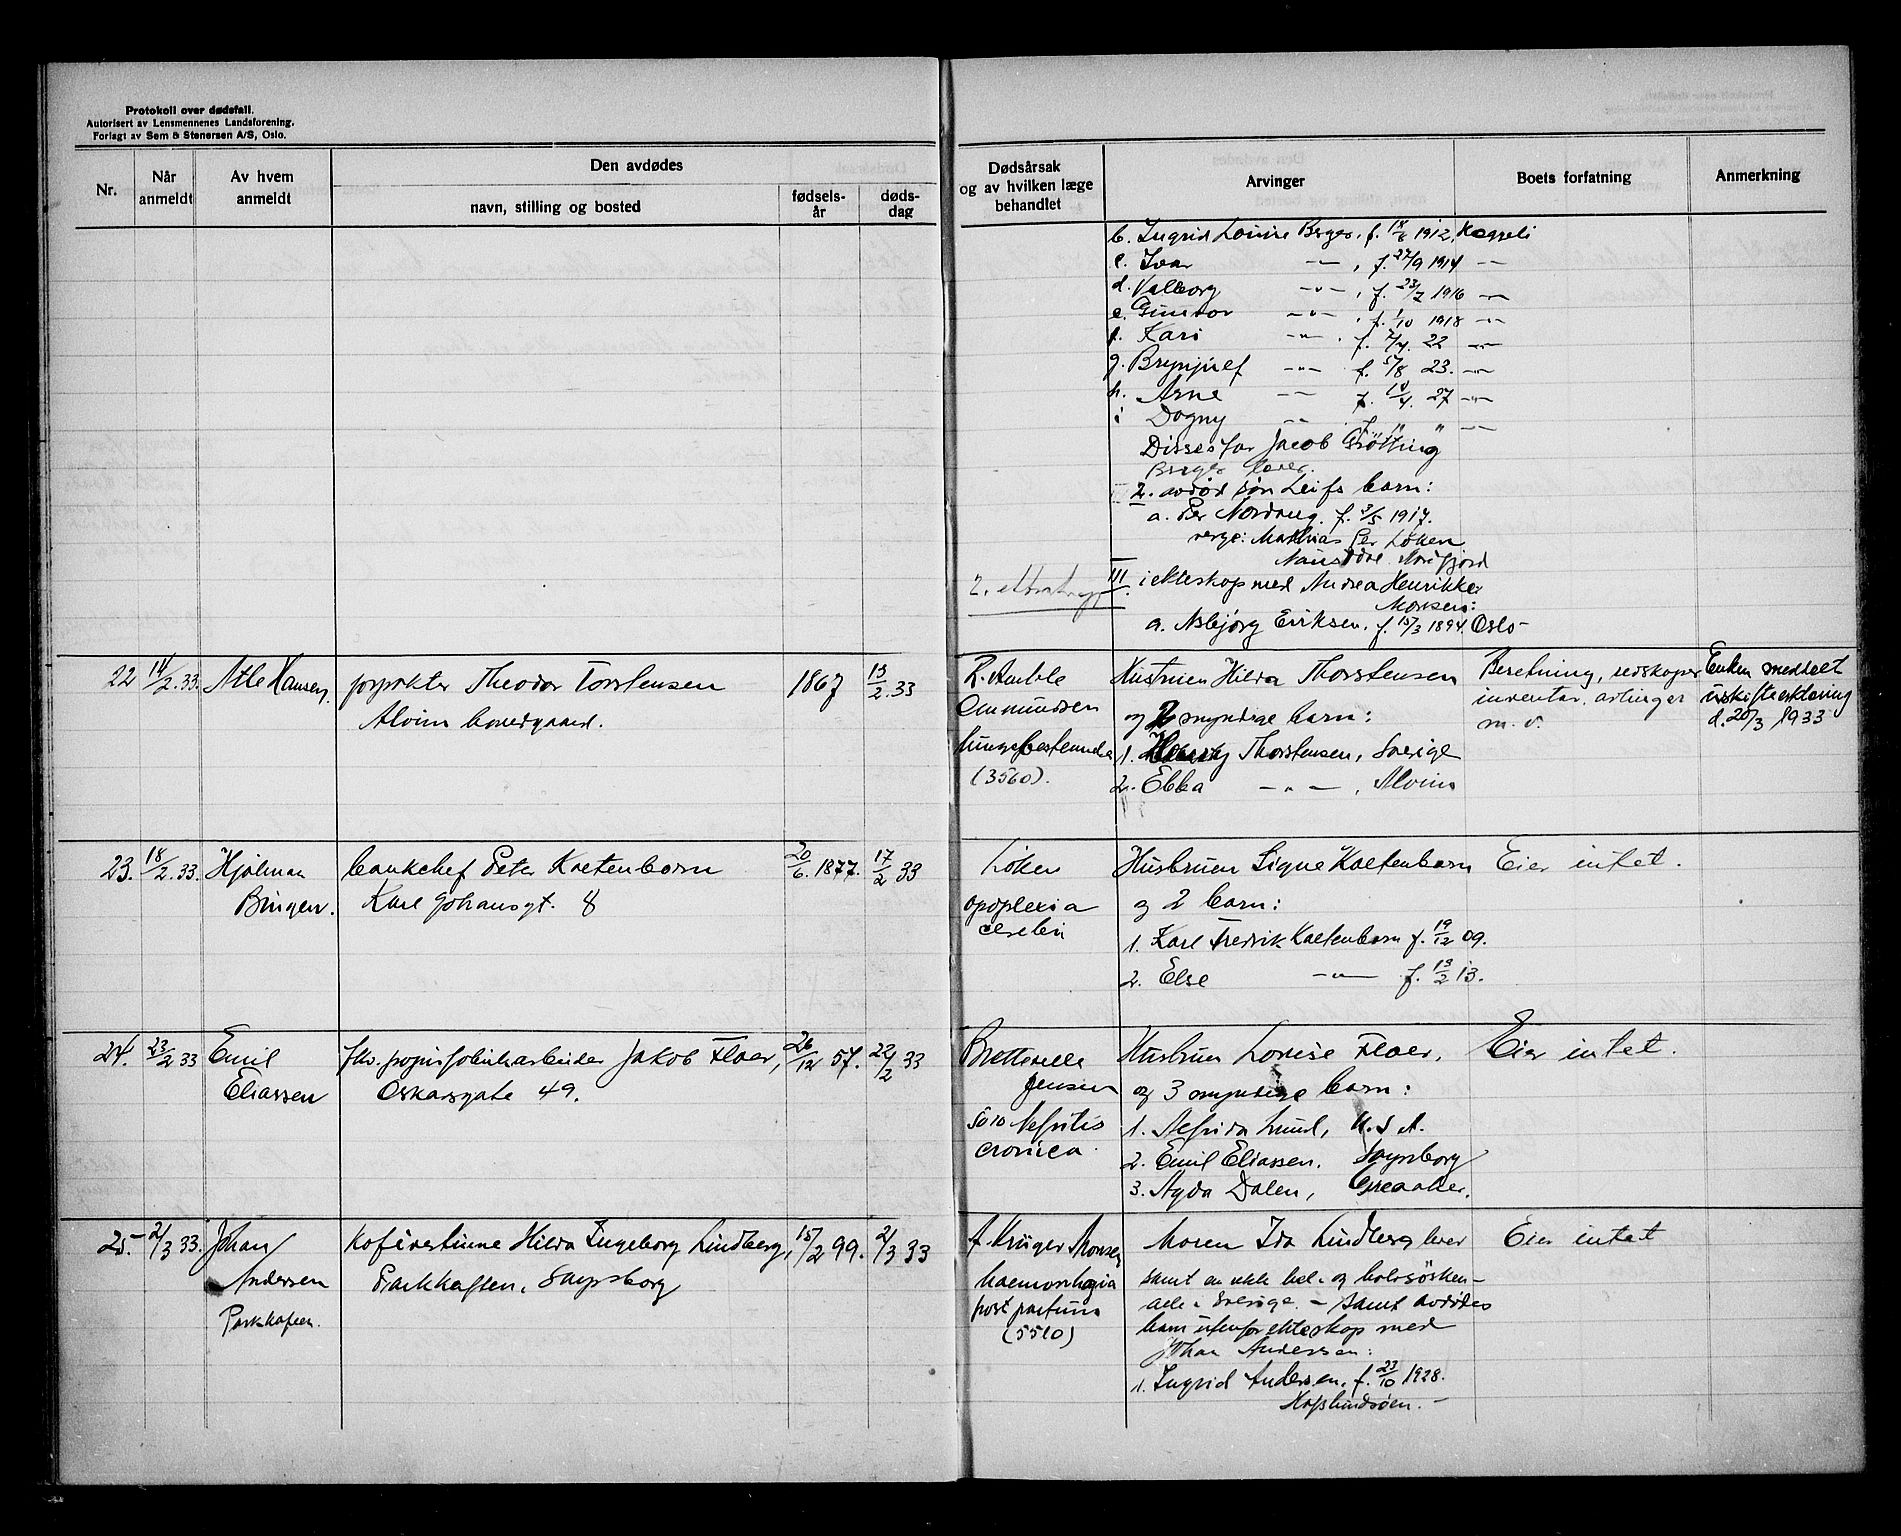 Protokoll over dødsfall.
Autorisert av Lensmennenes Landsforening.
Forlagt av Sem & Stenersen A/S, Oslo.
Nr.
Når anmeldt
Av hvem anmeldt
Den avdødes
navn, stilling og bosted
fødsels-år
døds-dag
Dødsårsak og av hvilken læge behandlet
Arvinger
Boets forfatning
Anmerkning
b. Ingrid Louise Berger, f. 18/8 1912,
c. Ivar —"—, f. 27/9 1914 —"—
d. Valborg —"—, f. 23/7 1916 —"—
e. Gunvor —"—, f. 1/10 1918 —"—
f. Kari —"—, f. 22 —"—
g. Brynjulf —"— f. 5/8 23. —"—
h. Arne —"— f. 18/4. 27 —"—
i Dagny —"— f. " " —"—
Disses far Jacob Grötting
Berger lever.
2. avdød søn Leifs barn:
a. Per Nordaug. f. 3/5 1917.
verge: Mathias Per Løken
Naustdal
III. i ekteskap med Andrea Henrikke
a. Asbjørg Eriksen, f. 15/3 1894. Oslo-
22 14/2.33. Atle Hansen, forpakter Theodor Torstensen 1867 13/2.33
Alvim hovedgaard.
R. Amble Ammundsen
lungebetennelse
(3560).
Hustruen Hilda Thorstensen
og 2 myndige barn:
1. Thorstensen, Sverige
2. Ebba —"—, Alvim
Besetning, redskaper
inventar, avlinger
m. v.
Enken meddelt
uskifteerklæring
d. 20/3 1933
23. 18/2.33. Hjalmar Bingen. bankchef Peter Kaltenborn 20/6.1877. 17/2 33
Karl Johansgt. 8
Løken
apoplexia
cerebri
Hustruen Signe Kaltenborn
og 2 barn:
1. Karl Fredrik Kaltenborn f. 19/12 09.
2. Else —"— f. 13/2 13.
Eier intet.
24. 23/2 33 Emil Eliassen fhv. papirfabrikarbeider Jakob Floer, 26/12 57. 22/2 33
Oskarsgate 49.
Bretteville
Jensen
5010 Nefritis
cronica.
Hustruen Lovise Floer,
og 3 myndige barn:
1. Alfrida Lund, U.S.A.
2. Emil Eliassen, Sarpsborg
3. Agda Dalen, Greaaker.
Eier intet.
25. 2/3 33. Johan Andersen Parkkafeen. Kafévertinne Hilda Ingeborg Lindberg, 15/2 99. 2/3 33
Parkkaféen, Sarpsborg
A. Krüger Monsen
haemorrhagia
post partum
(5510)
Moren Ida Lindberg lever
samt en rekke hel- og halvsøsken-
alle i Sverige. - Samt avdødes
barn utenfor ekteskap med
Johan Andersen:
1. Ingrid Andersen, f. 23/10 1928.
Hafslundsøen. -
Eier intet